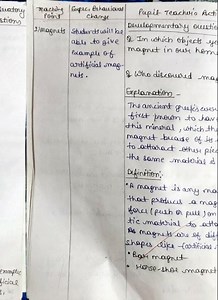 Teaching Point
Expec. Behavioural Change
Pupil Teacher's Act
Developmentary questio
Q In which objects yo
magnet in our hom
Q Who discovered mag
1) Magnets
Students will be
able to give
example of
artificial mag-
nets.
Explanation -
The ancient greeks were
first known to have
this mineral, which th
magnet because of its
to attract other piec
the same material is
Definition:-
• A magnet is any ma
that produces a mag
force (push or pull) on
tic material to attra
As magnets are of diff
shapes like - (artificial
• Bar magnet
• Horse-shoe magnet